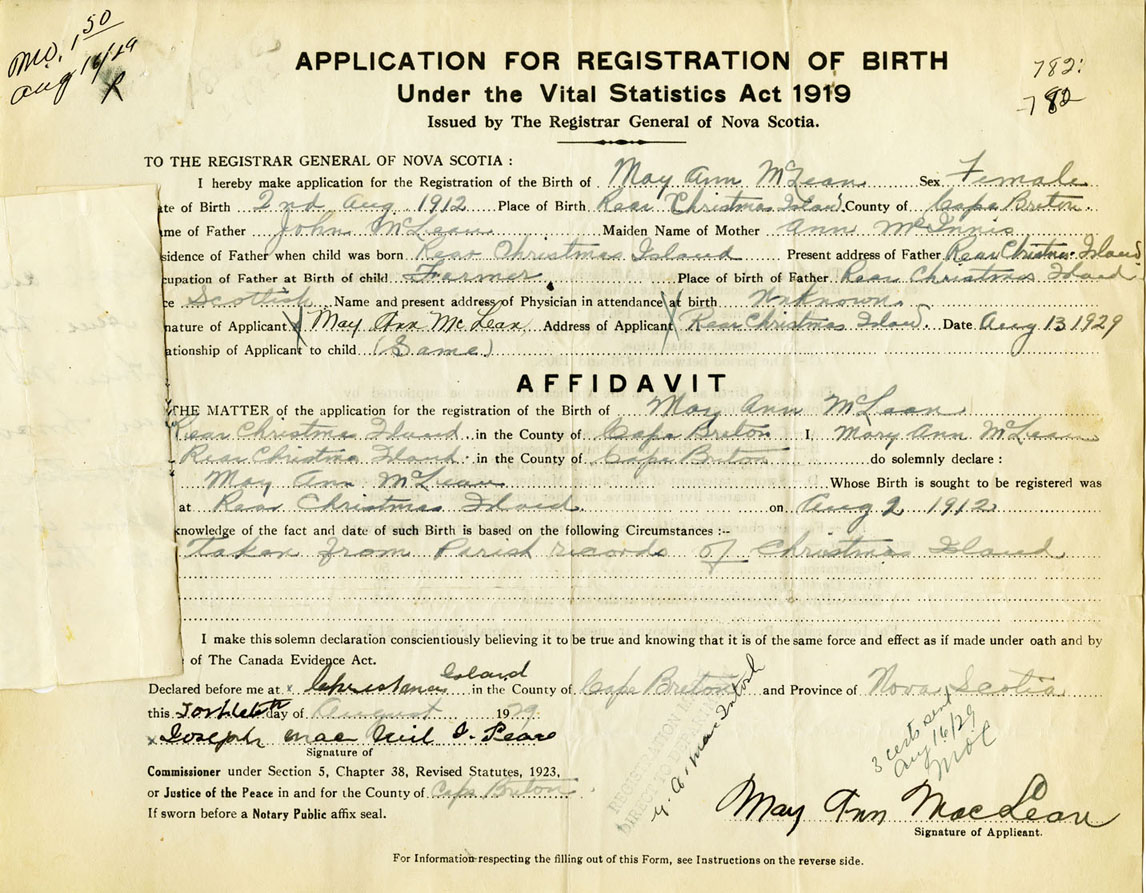 MO. 1 50
Aug 16/29
APPLICATION FOR REGISTRATION OF BIRTH
782:
Under the Vital Statistics Act 1919
782
Issued by The Registrar General of Nova Scotia.
TO THE REGISTRAR GENERAL OF NOVA SCOTIA :
I hereby make application for the Registration of the Birth of May Ann McLean Sex Female
te of Birth 2nd Aug 1912 Place of Birth Rear Christmas Island County of Cape Breton.
me of Father John McLean Maiden Name of Mother Ann McInnis
sidence of Father when child was born Rear Christmas Island Present address of Father Rear Christmas Island
cupation of Father at Birth of child Farmer Place of birth of Father Rear Christmas Island
ce Scottish Name and present address of Physician in attendance at birth Unknown
nature of Applicant X May Ann McLean Address of Applicant Rear Christmas Island Date Aug 13 1929
ationship of Applicant to child (Same)
AFFIDAVIT
THE MATTER of the application for the registration of the Birth of May Ann McLean
Rear Christmas Island in the County of Cape Breton I, Mary Ann McLean
Rear Christmas Island in the County of Cape Breton do solemnly declare :
May Ann McLean Whose Birth is sought to be registered was
at Rear Christmas Island on Aug 2 1912
knowledge of the fact and date of such Birth is based on the following Circumstances :--
Taken from Parish records of Christmas Island
I make this solemn declaration conscientiously believing it to be true and knowing that it is of the same force and effect as if made under oath and by
of The Canada Evidence Act.
Declared before me at x Christmas Island in the County of Cape Breton and Province of Nova Scotia
this day of August 1929
x Joseph Mac Neil J. Peace
Signature of
3 certs sent
Aug 16/29
Commissioner under Section 5, Chapter 38, Revised Statutes, 1923,
or Justice of the Peace in and for the County of Cape Breton.
If sworn before a Notary Public affix seal.
May Ann MacLean
Signature of Applicant.
For Information respecting the filling out of this Form, see Instructions on the reverse side.